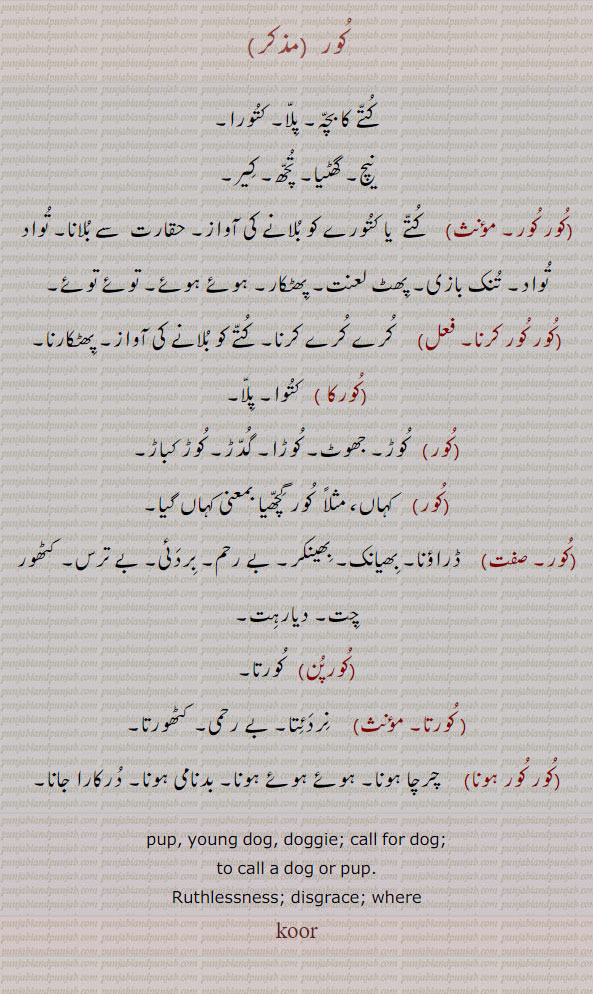 کُور (مذکر)
کُتّے کا بچّہ۔ پِلّا۔ کتُورا۔
نِیچ۔ گھٹیا۔ تُچھّ۔ کِیر۔
(کُور کُور۔ مؤنث) کُتّے یا کتُورے کو بُلانے کی آواز۔ حقارت سے بُلانا۔ تُواد
تُواد۔ تُنک بازی۔ پِھٹ لعنت۔ پِھٹکار۔ ہوئے ہوئے۔ توئے توئے۔
(کُور کُور کرنا۔ فعل) کُرے کُرے کرنا۔ کُتّے کو بُلانے کی آواز۔ پِھٹکارنا۔
(کُورکا) کتُوا۔ پِلّا۔
(کُور) کُوڑ۔ جھوٹ۔ کُوڑا۔ گُدّڑ۔ کُوڑ کباڑ۔
(کُور) کہاں، مثلاً کُور گچھّیا بمعنیٰ کہاں گیا۔
(کُور۔ صفت) ڈراؤنا۔ بِھیانک۔ بِھینکر۔ بے رحم۔ بِردَئی۔ بے ترس۔ کٹھور
چِت۔ دیارہِت۔
(کُورپُن) کُورتا۔
(کُورتا۔ مؤنث) نِردَئِتا۔ بے رحمی۔ کٹھورتا۔
(کُور کُور ہونا) چرچا ہونا۔ ہوئے ہوئے ہونا۔ بدنامی ہونا۔ دُرکارا جانا۔
pup, young dog, doggie; call for dog;
to call a dog or pup.
Ruthlessness; disgrace; where
koor